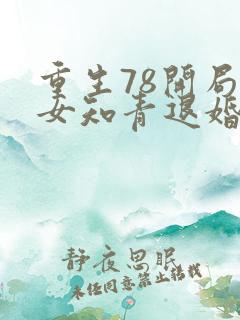 重生78開局
女知青退婚
靜夜思眠
未經同意禁止轉載